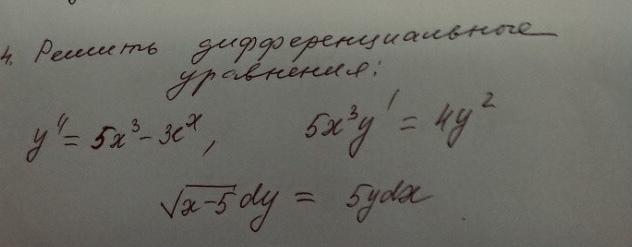 4. Решить дифференциальные
уравнения:
y'' = 5x³ - 3e^x, 5x³y' = 4y²
√(x-5) dy = 5ydx